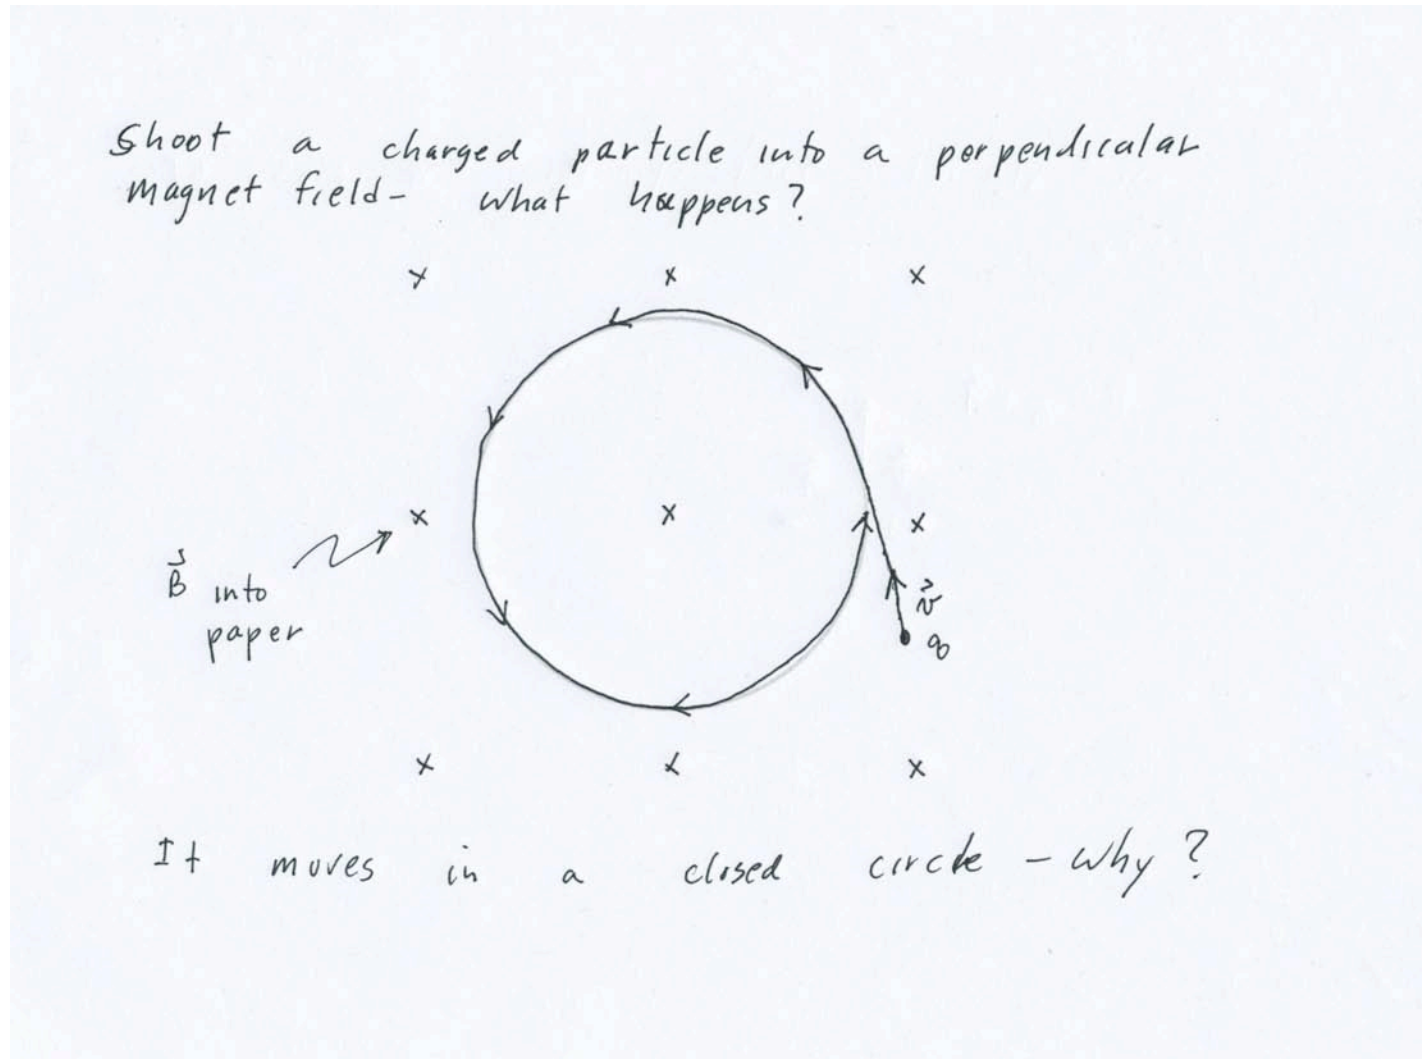 Shoot a charged particle into a perpendicular
magnet field - what happens?
x x x
x x x
B⃗ into
paper
v⃗
q
x x x
It moves in a closed circle - why?